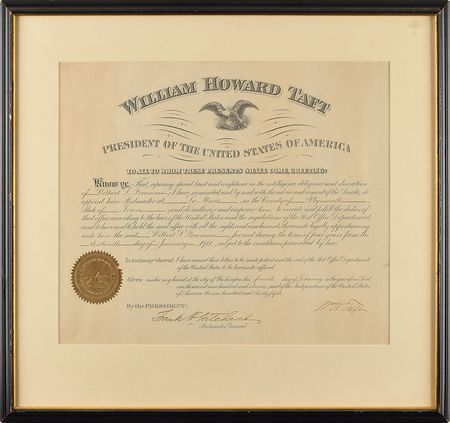 WILLIAM HOWARD TAFT
PRESIDENT OF THE UNITED STATES OF AMERICA
TO ALL TO WHOM THESE PRESENTS SHALL COME, GREETING:
Know ye, That, reposing special trust and confidence in the intelligence, diligence and discretion
of I have nominated, and by and with the advice and consent of the Senate, do
appoint him Postmaster at Le Mars, in the County of Plymouth
State of Iowa and do authorize and empower him to execute and fulfil the duties of
that office according to the laws of the United States and the regulations of the Post Office Department,
and to have and to hold the said office with all the rights and emoluments thereunto legally appertaining
unto him the said for and during the term of four years from the
day of January 1911, subject to the conditions prescribed by law.
In testimony whereof I have caused these letters to be made patent and the seal of the Post Office Department
of the United States to be hereunto affixed.
Given under my hand at the city of Washington the day of in the year of our Lord
one thousand nine hundred and eleven, and of the Independence of the United States
of America the one hundred and thirty-fifth.
By the PRESIDENT:
Wm H Taft
Frank H Hitchcock
Postmaster General